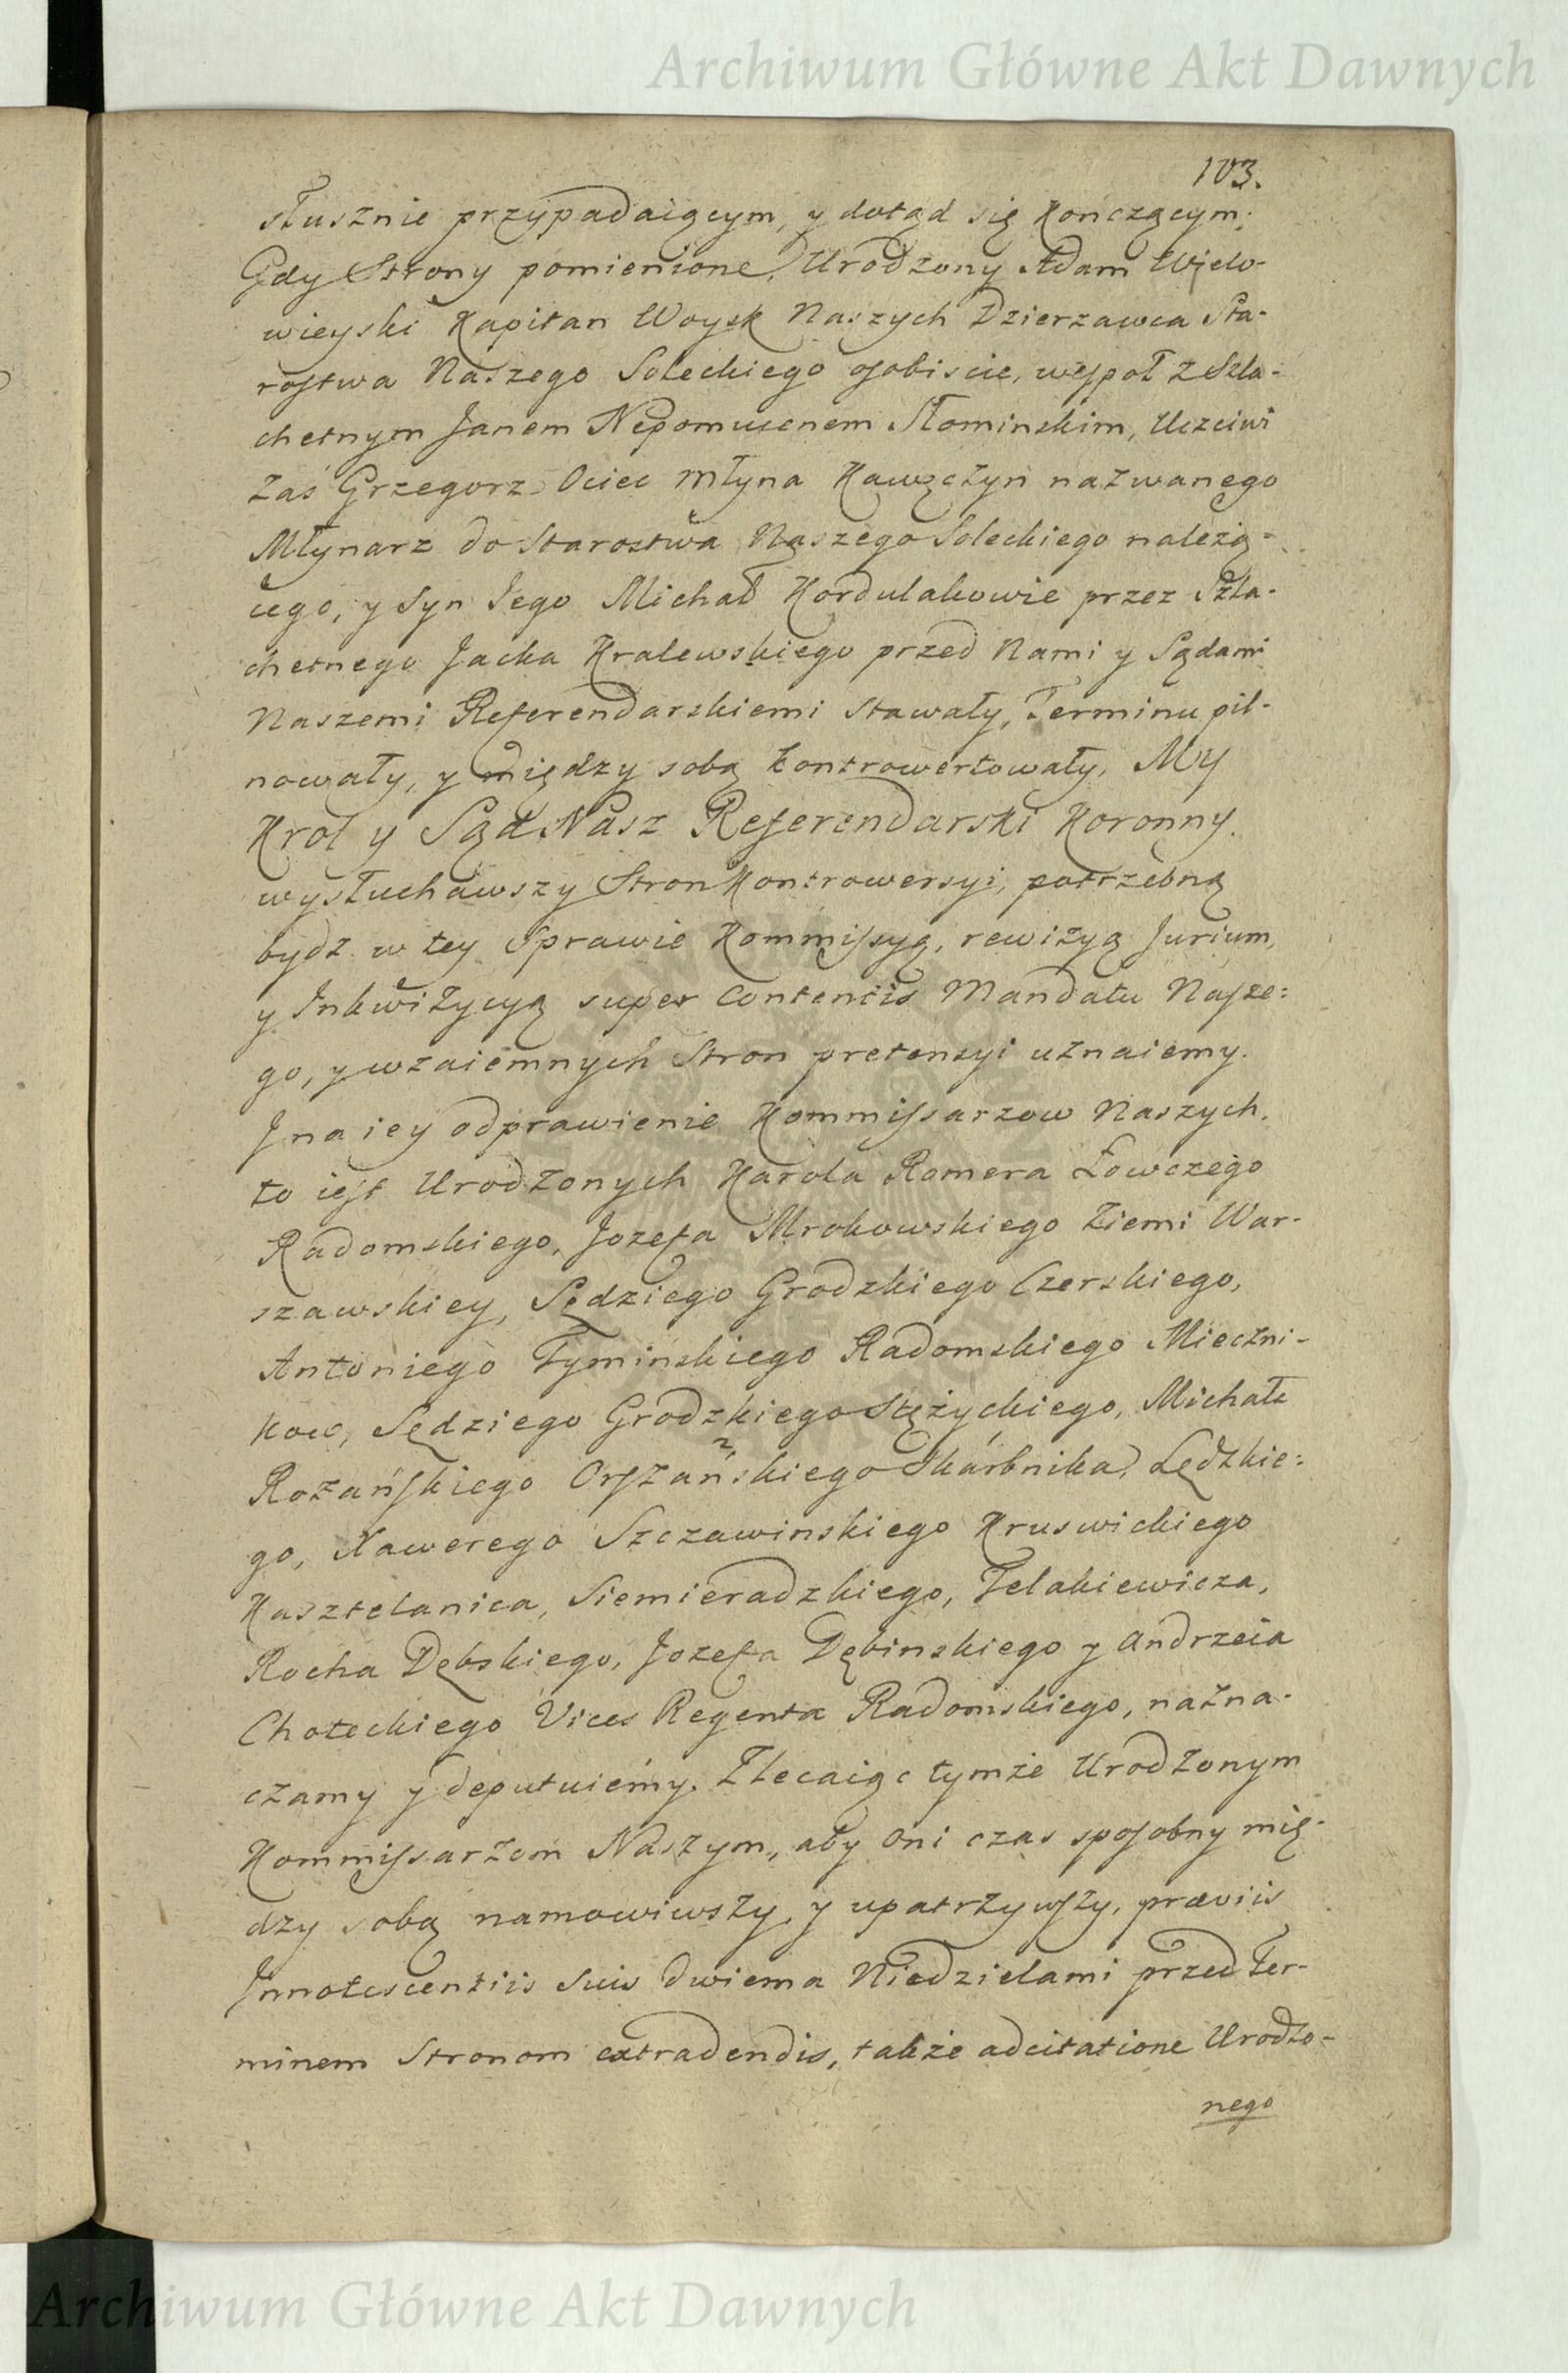 Archiwum Główne Akt Dawnych
103.
słusznie przypadaiącym, y dotąd się Kończącym;
Gdy Strony pomienione, Urodzony Adam Wielo-
wieyski Kapitan Woysk Naszych Dzierzawca Sta-
rostwa Naszego Soleckiego osobiscie, wespoł z Szla-
chetnym Janem Nepomucenem Słominskim, Uczciwi
zaś Grzegorz Ociec Młyna nazwanego
Młynarz do Starostwa Naszego Soleckiego należą-
cego, y Syn Jego Michał Kordulakowie przez Szla-
chetnego Jacka Kralewskiego przed Nami y Sądami
Naszemi Referendarskiemi stawały, Terminu pil-
nowały, y między sobą kontrowertowały, My
Krol y Sąd Nasz Referendarski Koronny.
wysłuchawszy Stron Kontrowersyi, potrzebną
bydz w tey Sprawie Kommissyą, rewizyą Jurium,
y Inkwizycyą super Contentis Mandatu Nasze:
go, y wzaiemnych Stron pretensyi uznaiemy.
J na iey odprawienie Kommissarzow Naszych.
to iest Urodzonych Karola Romera Łowczego
Radomskiego, Jozefa Mrokowskiego Ziemi War-
szawskiey, Sędziego Grodzkiego Czerskiego,
Antoniego Tyminskiego Radomskiego Mieczni-
kow, Sędziego Grodzkiego Stężyckiego, Michała
Rozańskiego Orszańskiego Skarbnika, Lędzkie:
go, Xawerego Szczawinskiego Kruswickiego
Kasztelanica, Siemieradzkiego, Telakiewicza,
Rocha Dębskiego, Jozefa Dębinskiego y Andrzeia
Choteckiego Vices Regenta Radomskiego, nazna-
czamy y deputuiemy. Zlecaiąc tymże Urodzonym
Kommissarzom Naszym, aby oni czas sposobny mię-
dzy sobą namowiwszy, y upatrzywszy, præviis
Innotescentiis suis dwiema Niedzielami przed Ter-
minem Stronom extradendis, także adcitatione Urodzo-
nego
Archiwum Główne Akt Dawnych